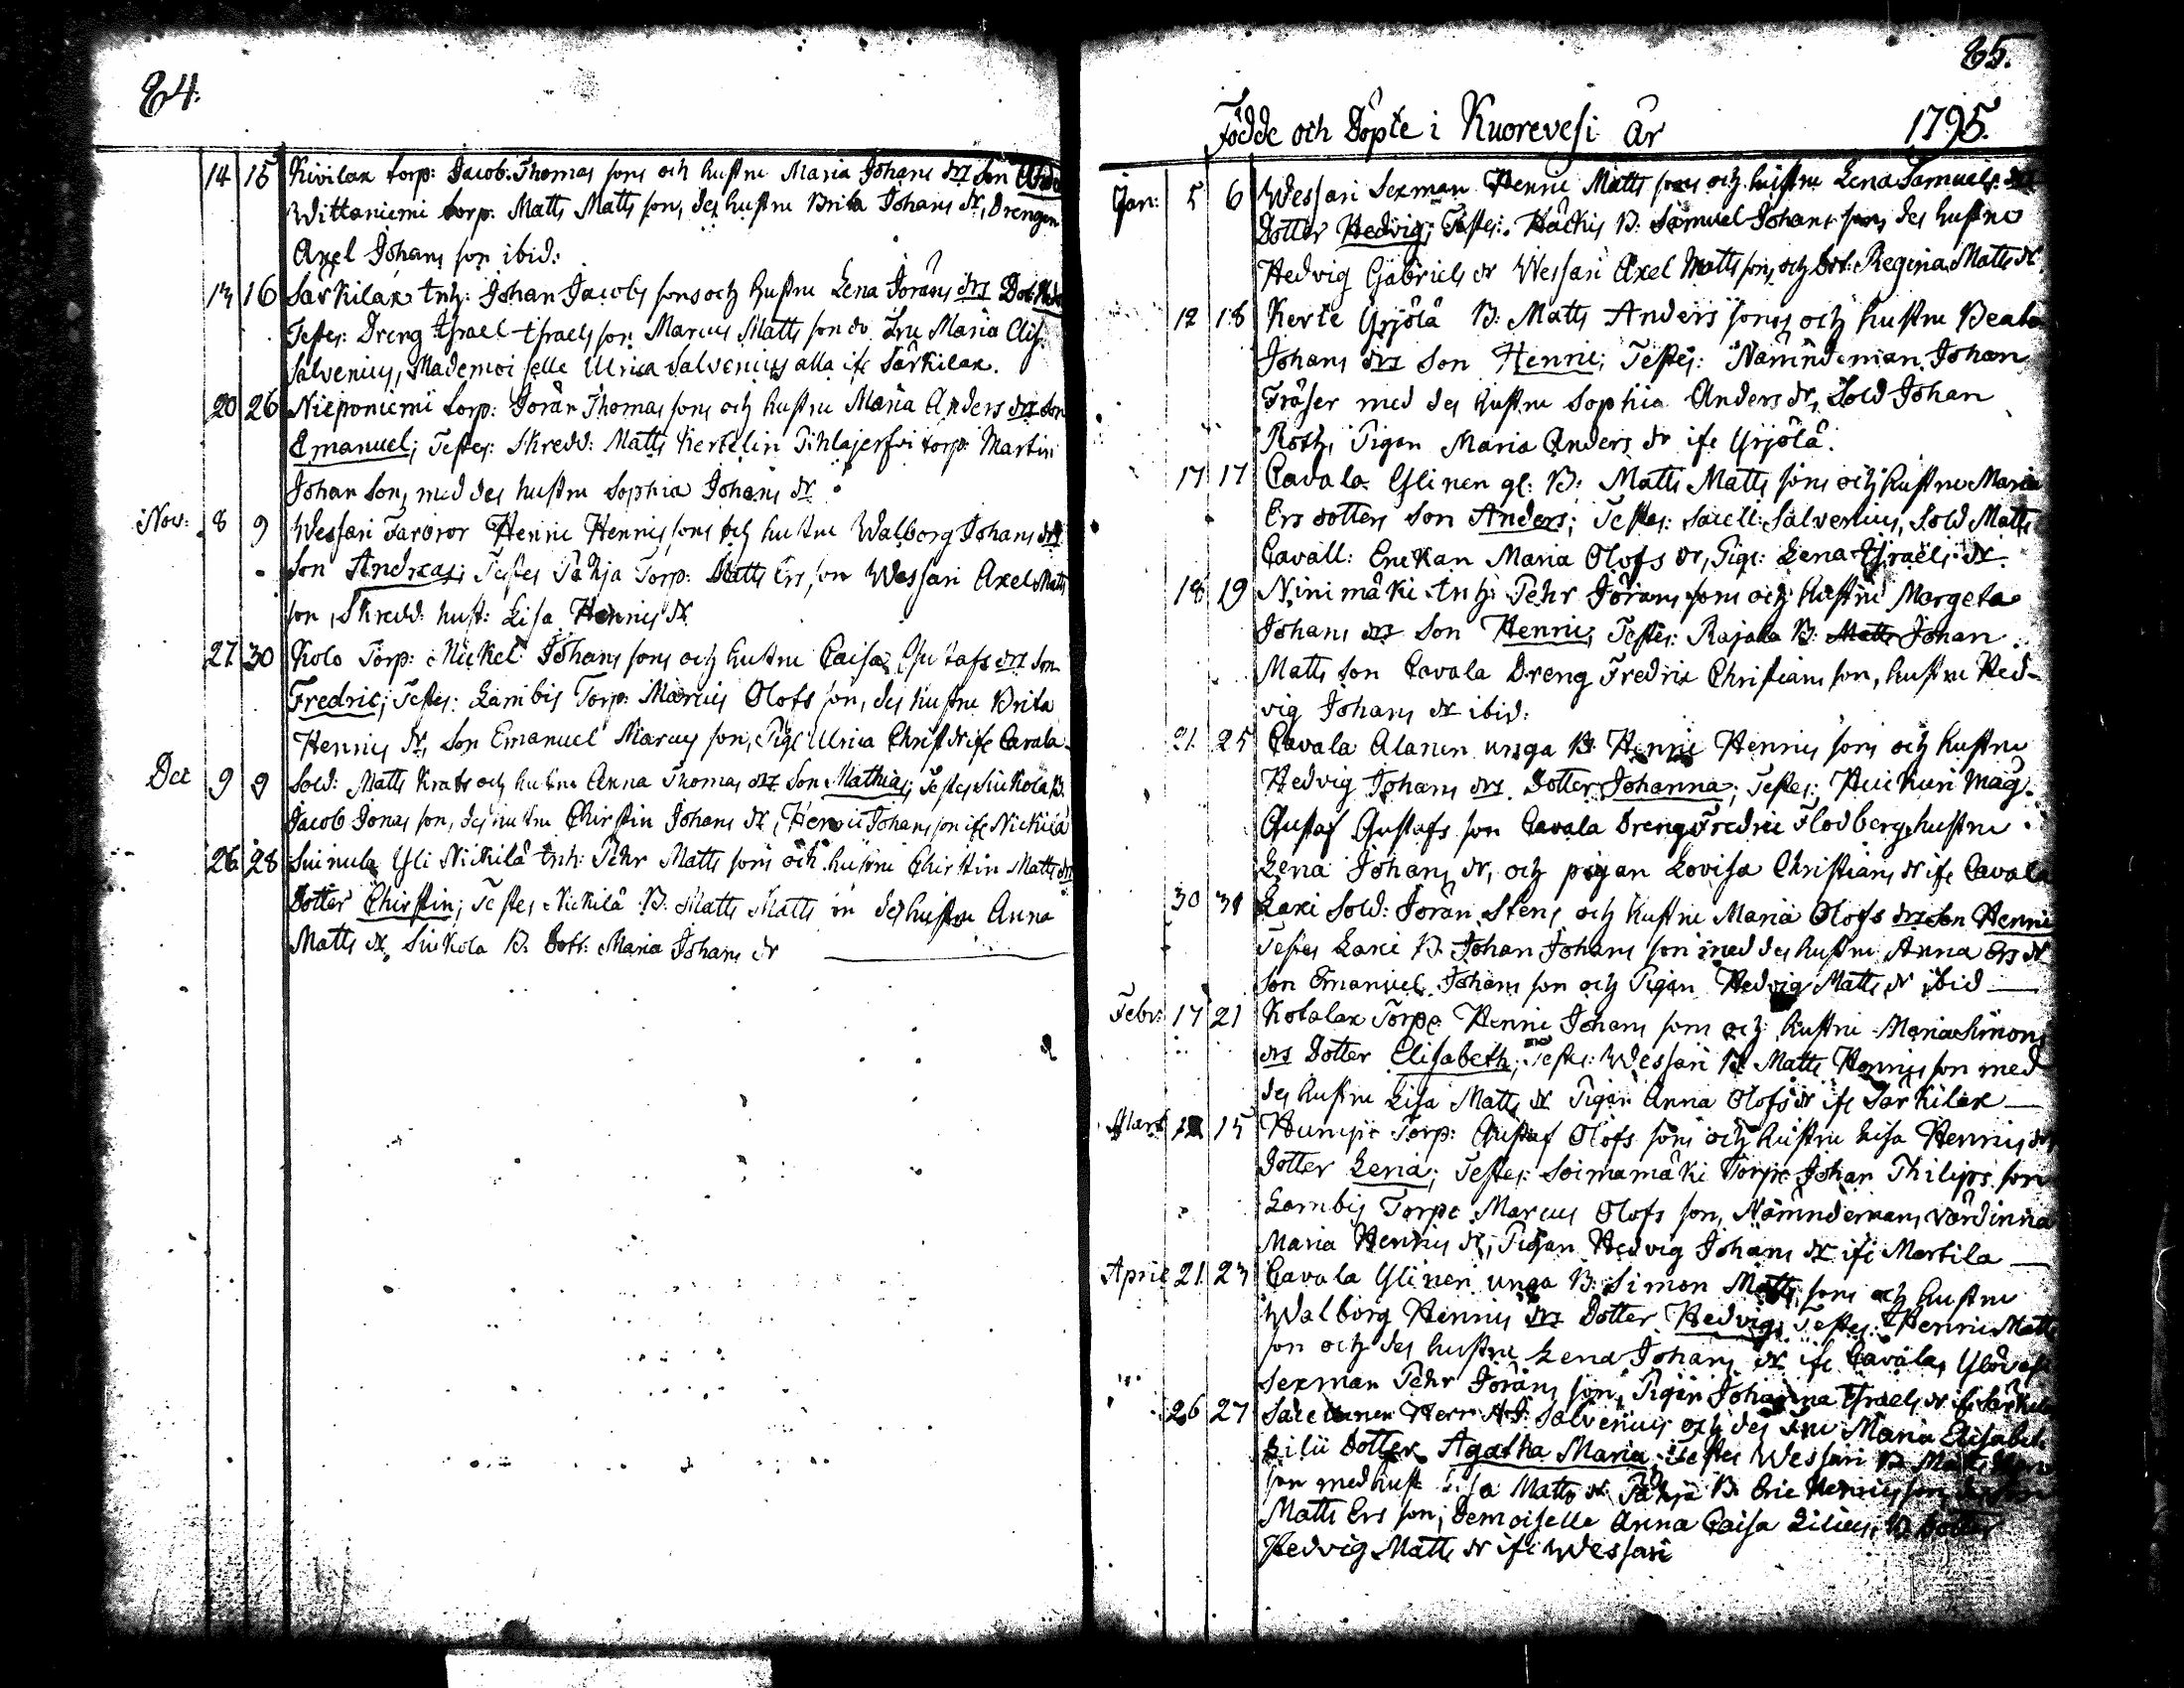 84.
14 15 Kivilax torp: Jacob Thomas sons och hustru Maria Johans drs Son
Wittaniemi torp: Matts Matts son, des hustru Brita Johans dr, Drengen
Axel Johans son ibid:
13 16 Särkilax tnh: Johan Jacobs sons och hustru Lena Jörans drs Dot.
Testes: Dreng Israel Israels son Marcus Matts son do Fru Maria Elis.
Salvenius, Mademoiselle Ulrica Salvenius alla ifr Särkilax.
20 26 Nieponiemi torp: Jöran Thomas sons och hustru Maria Anders drs Son
Emanuel; Testes: Skredd: Matts Kertelin Pihlajerfvi torp: Martin
Johan Sons med des hustru Sophia Johans dr
Nov: 8 9 Wessari Farbror Henric Henrics sons och hustru Walborg Johans drs
Son Andreas; Testes Pähjä Torp: Matts Ers son Wessari Axel Matts
son, Skredd: hust: Lisa Henrics dr
27 30 Kolo Torp: Mickel Johans sons och hustru Caisa Gustafs drs Son
Fredric; Testes: Lambis Torp: Marcus Olofs son, des hustru Brita
Henrics dr, Son Emanuel Marcus son, Pig: Ulrica Christ dr ifr Cavala
Dec 9 9 Sold: Matts Krats och hustru Anna Thomas drs Son Mathias; Testes Suikola B.
Jacob Jonas son, des hustru Chirstin Johans dr, Henric Johans son ifr Nickilä
26 28 Suinula Yli Nickilä tnh: Pehr Matts sons och hustru Chirstin Matts drs
Dotter Chirstin; Testes Nickilä B: Matts Matts son des hustru Anna
Matts dr, Suikola B. Dott: Maria Johans dr
85.
Födde och Döpte i Kuorevesi År 1795.
Jan: 5 6 Wessari Sexman Henric Matts sons och hustru Lena Samuels drs
Dotter Hedvig; Testes: Häckis B: Samuel Johans son, des hustru
Hedvig Gabriels dr Wessari Axel Matts son, och dot: Regina Matts dr
12 18 Kerte Yrjölä B: Matts Anders sons och hustru Beata
Johans drs Son Henric; Testes: Nämndeman Johan
Fräser med des hustru Sophia Anders dr, Sold Johan
Roth, Pigan Maria Anders dr ifr Yrjölä.
17 17 Cavala Ylinen gl: B: Matts Matts sons och hustru Maria
Ers dotters Son Anders; Testes: Sacell: Salvenius, Sold Matts
Cavall: Enckan Maria Olofs dr, Pig: Lena Israels dr
18 19 Ninimäki tnh: Pehr Jörans sons och hustru Margeta
Johans drs Son Henric, Testes: Rajala B: Matts Johan
Matts son Cavala Dreng Fredric Christians son, hustru Hed-
vig Johans dr ibid:
21 25 Cavala Alanen unga B: Henric Henrics sons och hustru
Hedvig Johans drs Dotter Johanna; Testes: Huikuri Mag
Gustaf Gustafs son Cavala Dreng Fredric Flodberg hustru
Lena Johans dr, och pigan Lovisa Christians dr ifr Cavala
30 31 Laxi Sold: Jöran Stens och hustru Maria Olofs drs Son Henric
Testes Laxi B: Johan Johans son med des hustru Anna Ers dr
Son Emanuel Johans son och Pigan Hedvig Matts dr ibid
Febr: 17 21 Kotalax Torp: Henric Johans sons och hustru Maria Simons
drs Dotter Elisabeth; Testes: Wessari B: Matts Henrics son med
des hustru Lisa Matts dr Pigan Anna Olofs dr ifr Särkilax
Mart 15 Humpi Torp: Gustaf Olofs sons och hustru Lisa Henrics drs
Dotter Lena; Testes: Soimamäki Torp: Johan Philips son
Lambis Torp: Marcus Olofs son, Nämndemans värdinna
Maria Henrics dr, Pigan Hedvig Johans dr ifr Martila
April 21 23 Cavala Ylinen unga B: Simon Matts sons och hustru
Walborg Henrics drs Dotter Hedvig; Testes: Henric Matts
son och des hustru Lena Johans dr ifr Cavala,
Sexman Pehr Jörans son, Pigan Johanna Israels dr ifr
26 27 Sacellanen Herr Salvenius och des Fru Maria Elisabet
Lilii Dotter Agatha Maria; Testes Wessari B: Matts
son med hust: Lisa Matts dr Pähjä B: Eric Henrics son,
Matts Ers son, Demoiselle Anna Caisa Lilius, B. Dotter
Hedvig Matts dr ifr Wessari